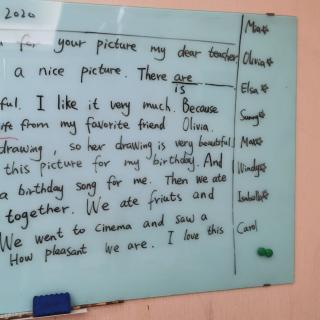 2020
for your picture my dear teacher
a nice picture. There are
is
ful. I like it very much. Because
from my favorite friend Olivia.
drawing, so her drawing is very beautiful
this picture for my birthday. And
a birthday song for me. Then we ate
together. We ate friuts and
We went to cinema and saw a
How pleasant we are. I love this
Max
Olivia
Elsa
Sunny
Max
Windy
Isabella
Carol